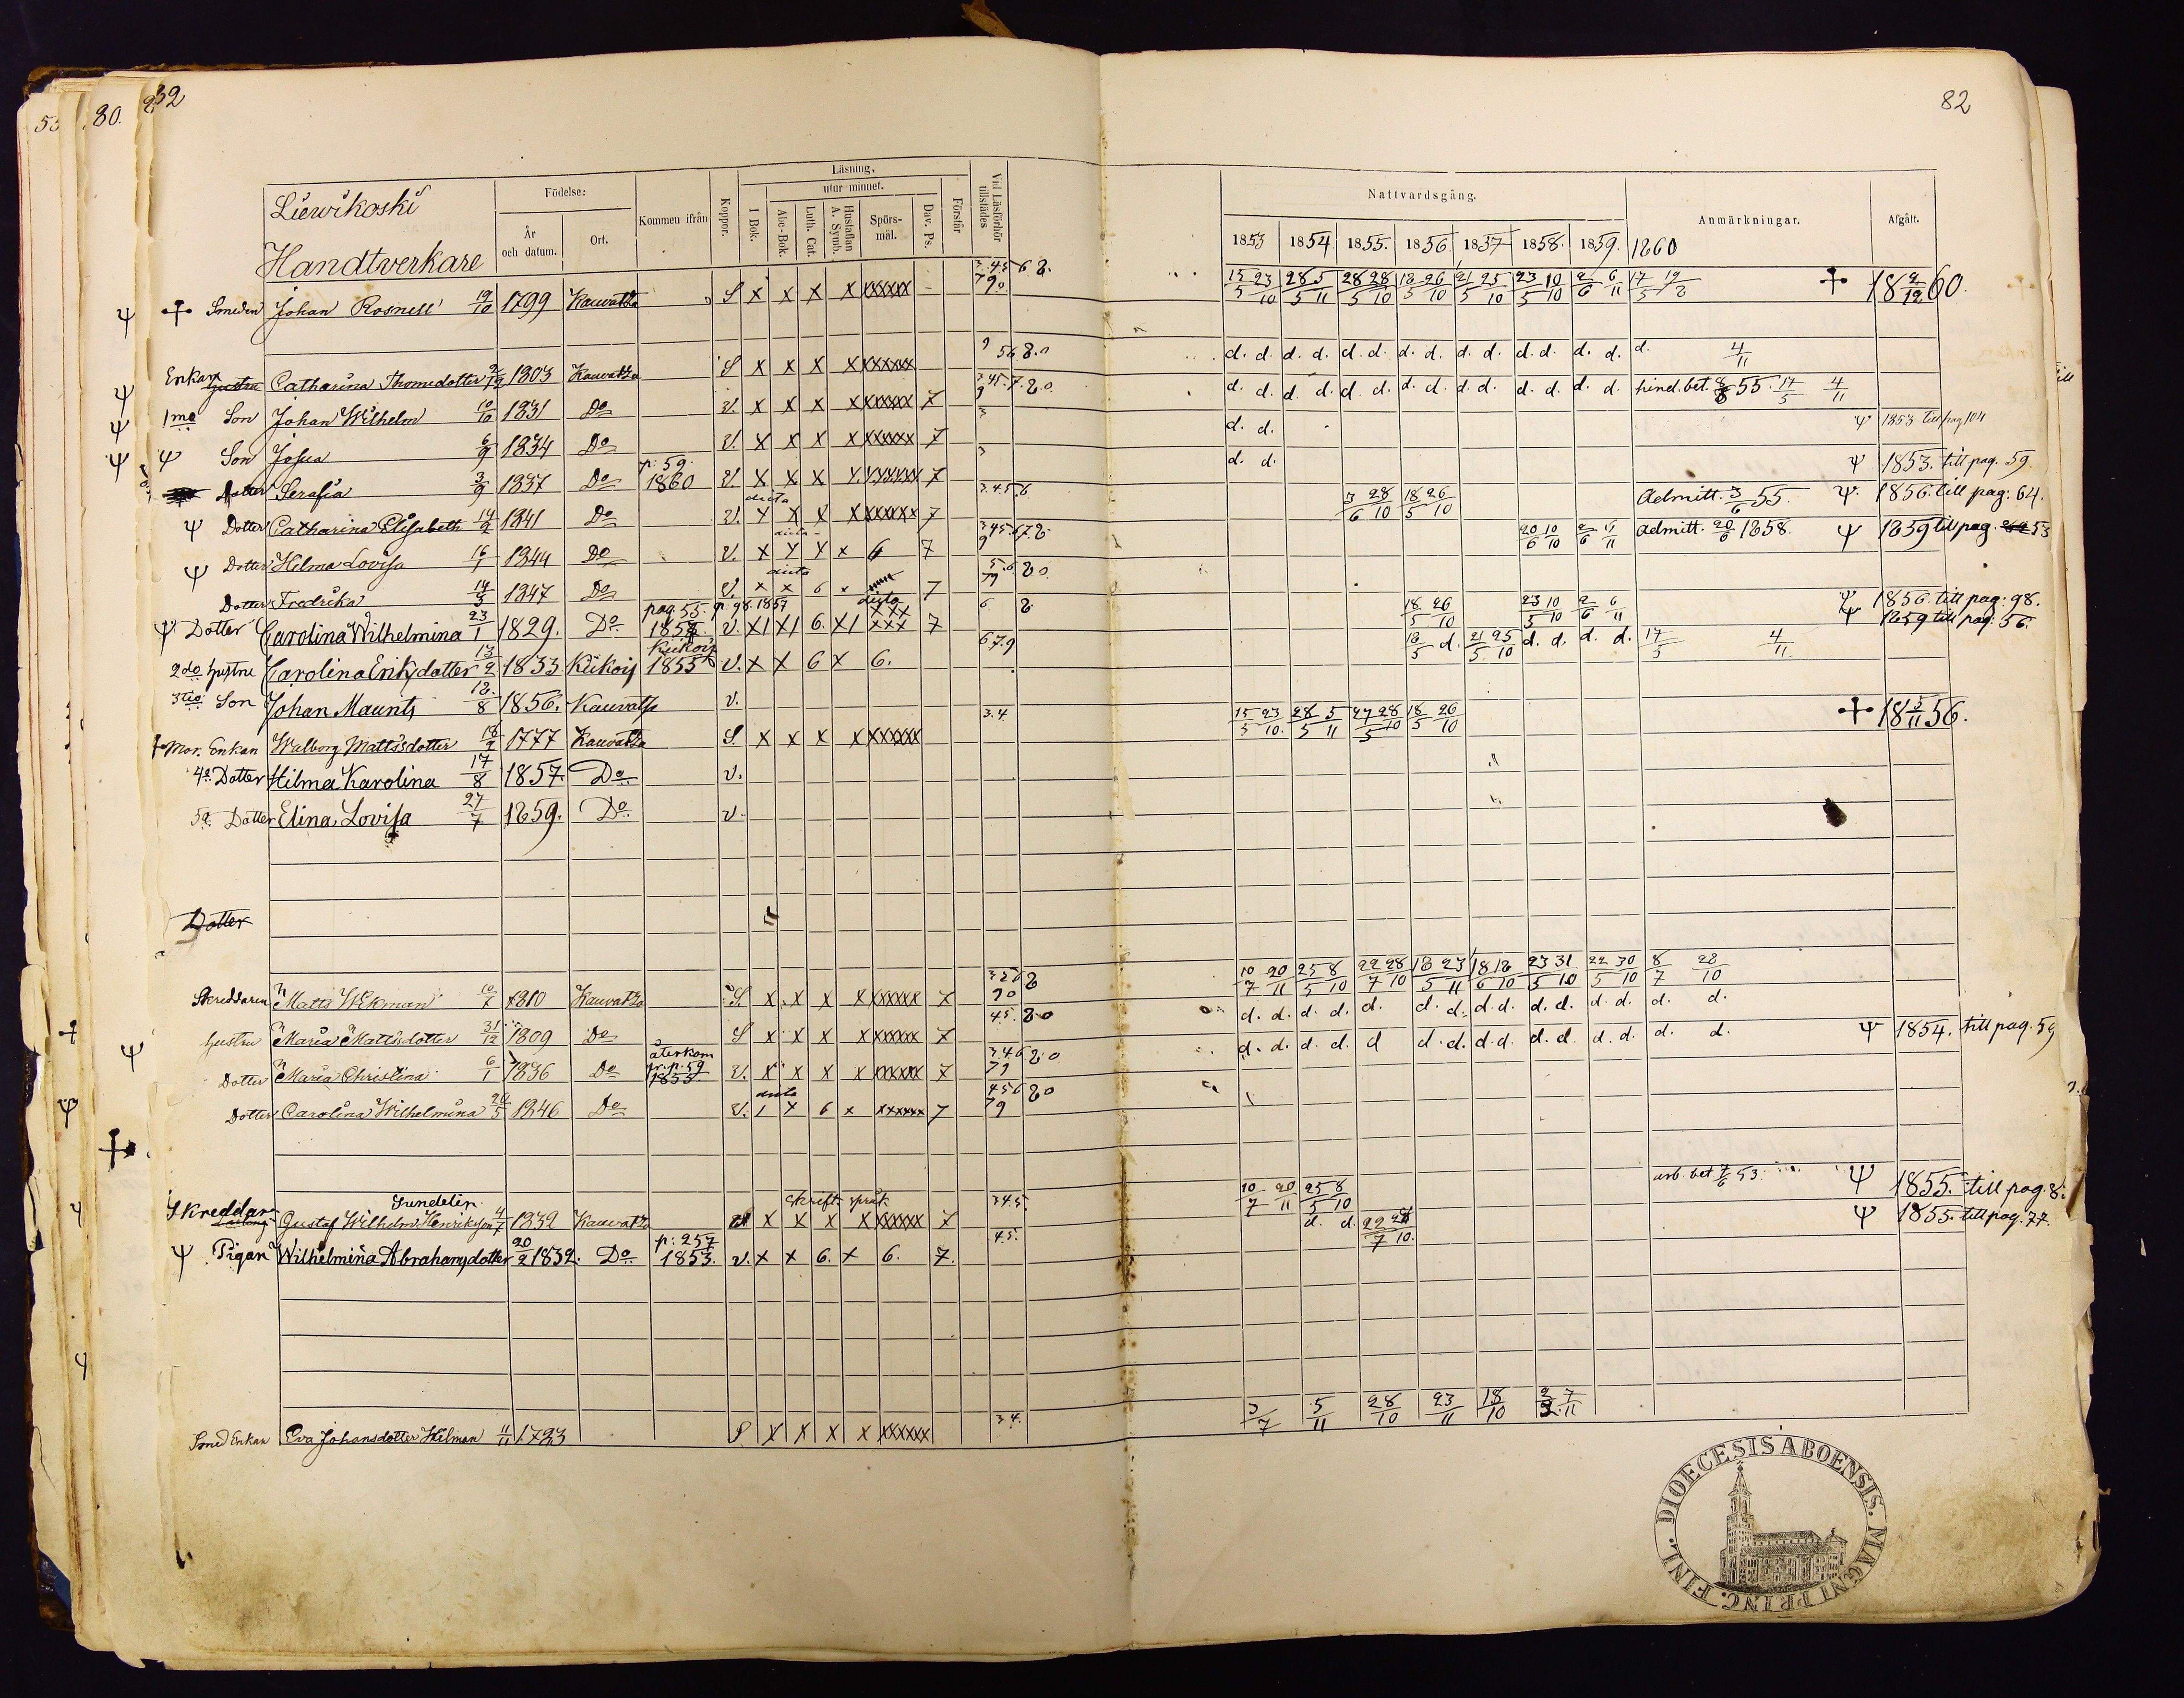 53 80. 82
82
Liewikoski
Handtverkare
Födelse:
År och datum.
Ort.
Kommen ifrån
Koppor.
Läsning,
I Bok.
utur minnet.
Abc-Bok.
Luth. Cat.
Hustaflan A. Symb.
Spörs-mål.
Dav. Ps.
Förstår
Vid Läsförhör tillstädes
Nattvardsgång.
1853 1854. 1855. 1856. 1857 1858. 1859. 1860
Anmärkningar.
Afgått.
Smeden Johan Rosnell 19/10 1799 Kauvatsa S x x x x xxxxxx 15/5 23/10 28/5 5/11 28/5 28/10 18/5 26/10 21/5 25/10 23/5 10/10 2/6 6/11 18 2/12 60.
Enkan Hustru Catharina Thomedotter 2/12 1803 Kauvatsa S x x x x xxxxxx d. d. d. d. d. d. d. d. d. d. d. d. d. d. d. 4/11
1mo Son Johan Wilhelm 10/10 1831 Do V. x x x x xxxxxx 7 d. d. d. d. d. d. d. d. d. d. d. d. d. d. hind. bet. 8/8 55. 17/5 4/11
Ψ Son Josua 6/9 1834 Do V. x x x x xxxxxx 7 d. d. Ψ 1853 till pag 104
Dotter Serafia 3/9 1837 Do p: 59. 1860 V. x x x x xxxxxx 7 d. d. Ψ 1853. till pag. 59.
Ψ Dotter Catharina Elisabeth 14/2 1841 Do V. x x x xxxxxx 7 3.4.5.6 3/6 28/10 18/5 26/10 Admitt. 3/6 55. Ψ 1856. till pag: 64.
Ψ Dotter Helma Lovisa 16/1 1844 Do V. x x x x 6 7 20/6 10/10 Admitt. 20/6 1858. Ψ 1859 till pag. 53
Dotter Fredrika 14/3 1847 Do V. x x 6 x 7
Ψ Dotter Carolina Wilhelmina 23/1 1829. Do pag. 55. p. 98. 1857 V. 6. 7 18/5 26/10 23/5 10/10 2/6 6/11 Ψ 1856. till pag: 98.
Ψ 1859 till pag: 56.
2do hustru Carolina Eriksdotter 13/2 1833 Kiikois Kiikois 1855 V. x x 6 x 6. 6.7.9 18/5 d. 21/5 25/10 d. d. d. d. 17/5 4/11
3tio Son Johan Maurits 18/8 1856. Kauvatsa V.
Mor. Enkan Walborg Mattsdotter 18/2 1777 Kauvatsa S. x x x x xxxxxx 3.4. 15/5 23/10. 28/5 5/11 27/5 28/10 18/5 26/10 18 5/11 56.
4a. Dotter Hilma Karolina 17/8 1857. Do V.
5a. Dotter Elina Lovisa 27/7 1859. Do V.
Dotter
Skreddaren Matts Wikman 10/7 1810 Kauvatsa S. x x x x xxxxxx x 10/7 20/11 25/5 8/10 22/7 28/10 18/5 23/11 18/6 18/10 23/5 31/10 22/5 30/10 8/7 28/10
hustru Maria Mattsdotter 31/12 1809 Do S x x x x xxxxxx 7 d. d. d. d. d. d. d. d. d. d. d. d. d. d. d.
Dotter Maria Christina 6/1 1836 Do återkom fr. p. 59 1855. V. x x x x xxxxxx 7 d. d. d. d. d d. d. d. d. d. d. d. d. d. d. Ψ 1854. till pag. 59
Dotter Carolina Wilhelmina 20/5 1846 Do V. 1 x 6 x xxxxxx 7
Sundelin
Skreddar Gustaf Wilhelm Henriksson 4/7 1832 Kauvatsa skrift. språk x x x x xxxxxx 7 3.4.5. 10/7 20/11 25/5 8/10 Ψ 1855. till pag. 8
Ψ Pigan Wilhelmina Abrahamsdotter 20/2 1832. Do p: 257 1853. v. x x 6. x 6. 7. 4.5. d. d. 22/7 28/10. Ψ 1855. till pag. 77.
Smed Enkan Eva Johansdotter Helman 11/11 1783 S x x x x xxxxxx 3.4. 3/7 5/11 28/10 23/11 18/10
DIOECESIS ABOENSIS. MAGNI PRINC. FINL.